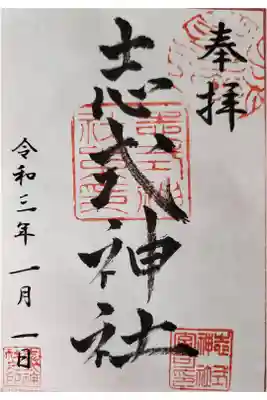 奉拝
志式神社
令和三年一月一日